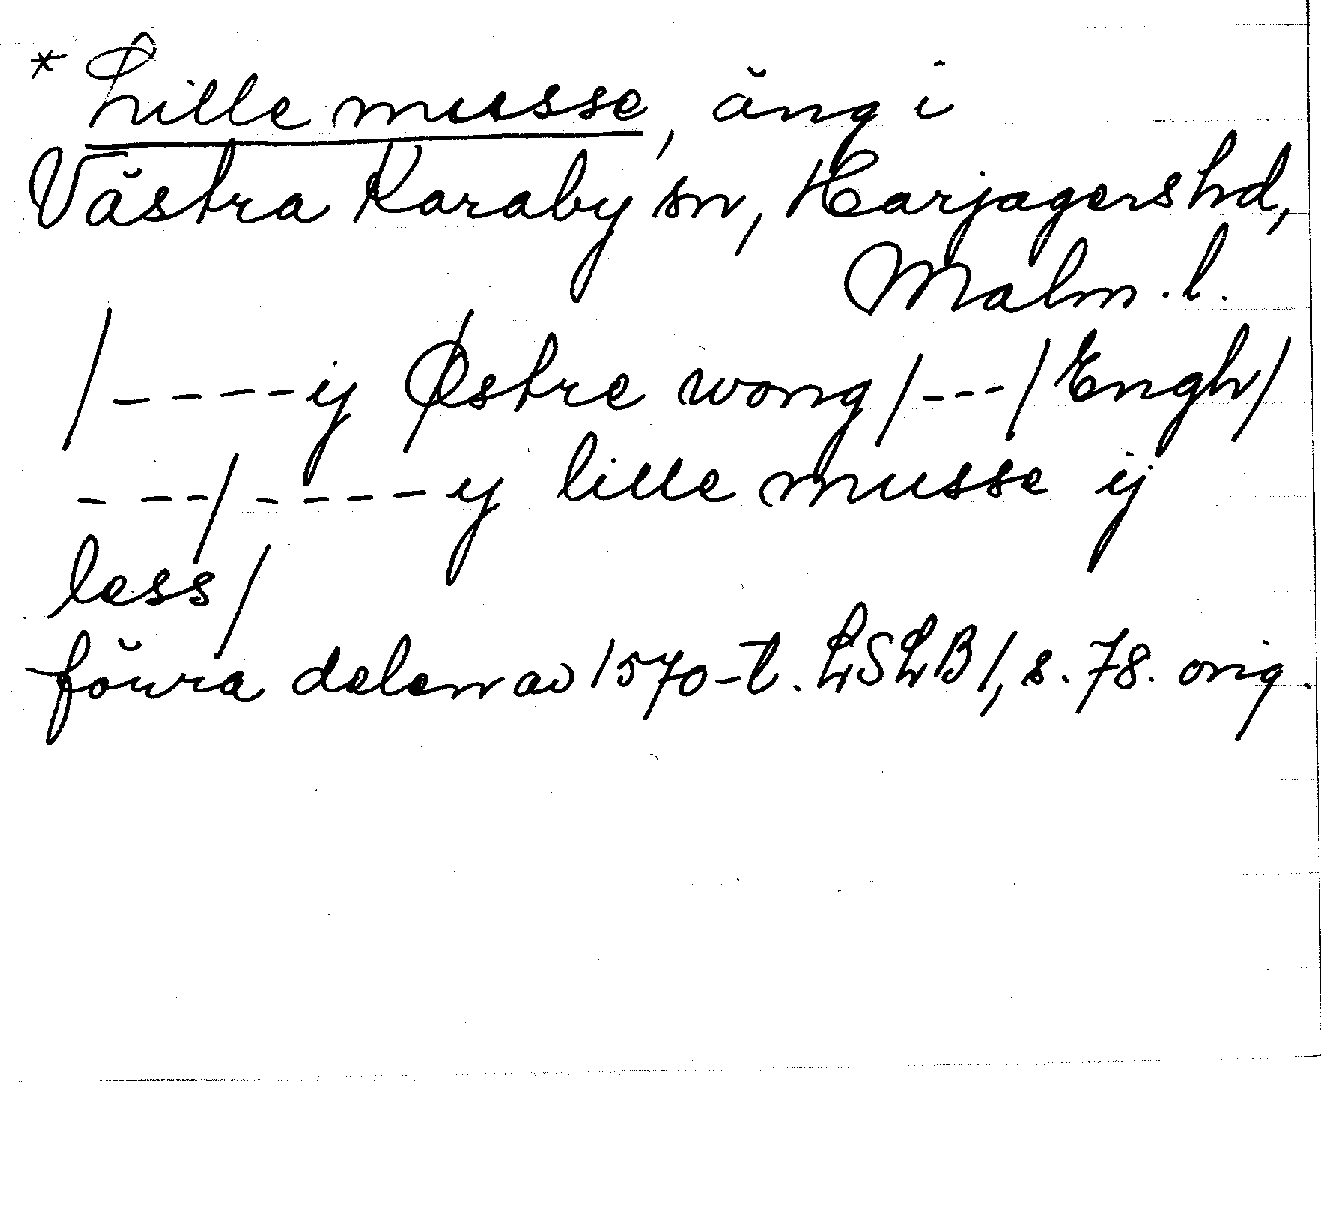 * Lille musse, äng i
Västra Karaby sn, Harjagers hd,
Malm. l.
/----- ij Østre wong/---/Engh/
----/----- ij lille musse ij
less/
förra delen av 1570-t. LSLB1, s. 78. orig.